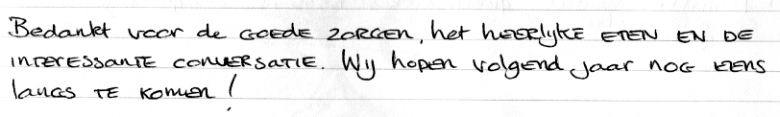 Bedankt voor de goede zorgen, het heerlijke eten en de
interessante conversatie. Wij hopen volgend jaar nog eens
langs te komen!